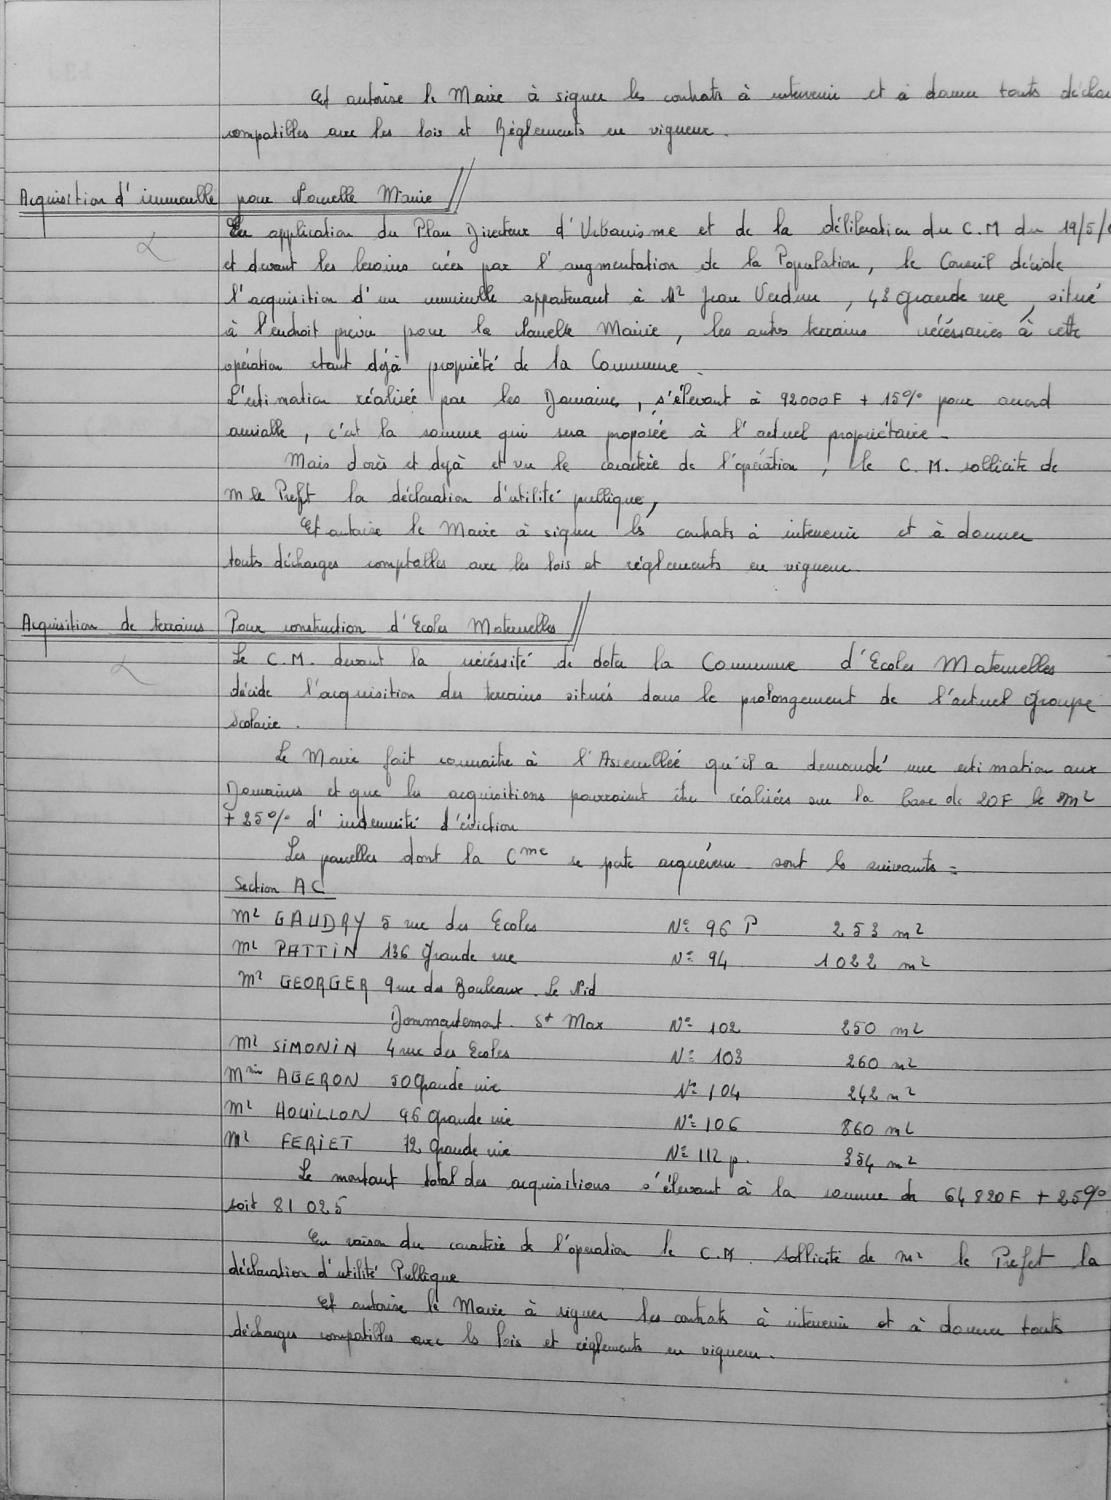 Et autorise le Maire à signer les contrats à intervenir et à donner touts déchar
compatibles avec les lois et Réglements en vigueur.
Acquisition d'immeuble pour Nouvelle Mairie
En application du Plan Directeur d'Urbanisme et de la délibération du C.M du 19/5/6
et devant les besoins créés par l'augmentation de la Population, le Conseil décide
l'acquisition d'un immeuble appartenant à Mr Jean Verdun, 48 Grande rue, situé
à l'endroit prévu pour la Nouvelle Mairie, les autres terrains nécéssaires à cette
opération étant déjà propriété de la Commune.
L'estimation réalisée par les Domaines, s'élevant à 92000F + 15% pour accord
amiable, c'est la somme qui sera proposée à l'actuel propriétaire.
Mais d'orès et déjà et vu le caractère de l'opération, le C.M. sollicite de
M le Préft la déclaration d'utilité publique,
Et autorise le Maire à signer les contrats à intervenir et à donner
touts décharges comptables avec les lois et réglements en vigueur.
Acquisition de terrains Pour construction d'Ecoles Maternelles
Le C.M. devant la nécéssité de doter la Commune d'Ecoles Maternelles
décide l'acquisition des terrains situés dans le prolongement de l'actuel Groupe
Scolaire.
Le Maire fait connaitre à l'Assemblée qu'il a demandé une estimation aux
Domaines et que les acquisitions pourraient être réalisées sur la base de 20F le m2
+ 25% d'indemnité d'éviction
Les parcelles dont la Cme se porte acquéreur sont les suivants =
Section AC
Mr GAUDRY 5 rue des Ecoles N° 96 P 253 m2
Mr PATTIN 136 Grande rue N° 94 1022 m2
Mr GEORGER 9 rue des Bouleaux. Le Nid
Dommartemont. St Max N° 102 250 m2
Mr SIMONIN 4 rue des Ecoles N° 103 260 m2
Mme AGERON 50 Grande rue N° 104 242 m2
Mr HOUILLON 46 Grande rue N° 106 860 m2
Mr FERIET 72 Grande rue N° 112 p. 354 m2
Le montant total des acquisitions s'élevant à la somme de 64820F + 25%
soit 81 025
En raison du caractère de l'opération le C.M. sollicite de Mr le Préfet la
déclaration d'utilité Publique
Et autorise le Maire à signer les contrats à intervenir et à donner touts
décharges compatibles avec les lois et réglements en vigueur.